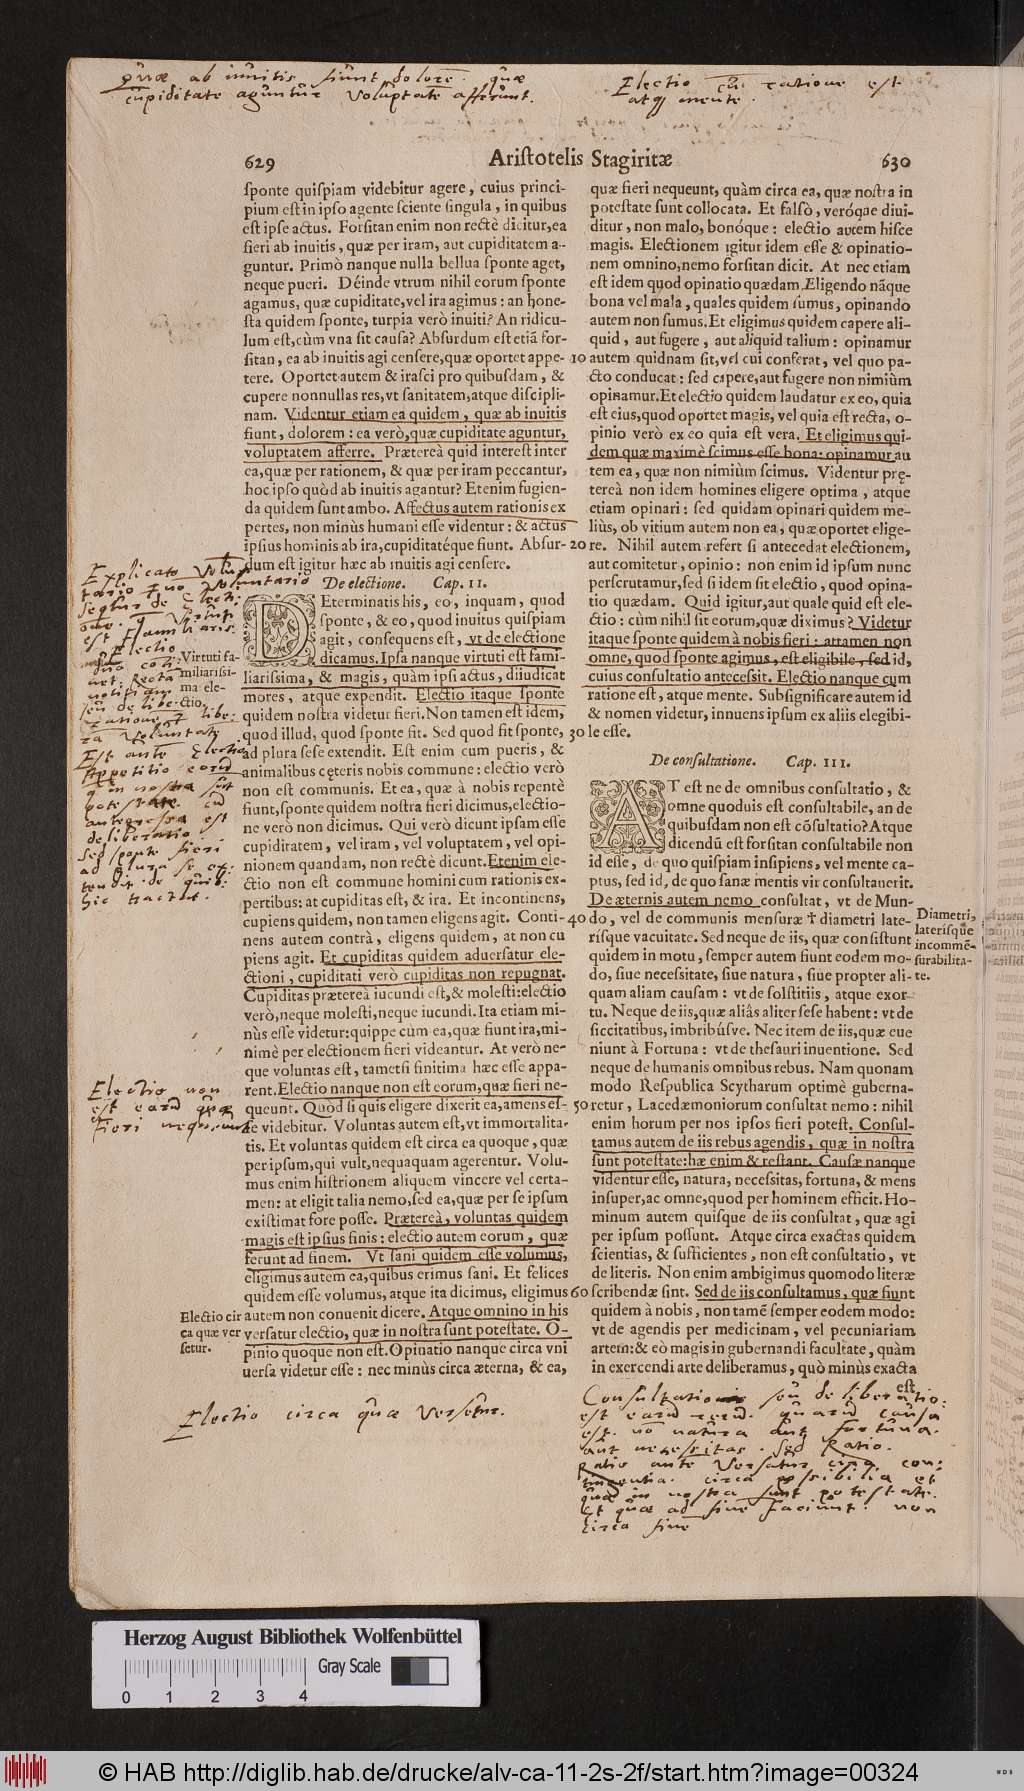 quæ ab inuitis fiunt dolorē. quæ
cupiditate aguntur voluptatē afferunt.
Electio cū ratione est
atq mente.
629
Aristotelis Stagiritæ
630
sponte quispiam videbitur agere, cuius princi-
pium est in ipso agente sciente singula, in quibus
est ipse actus. Forsitan enim non rectè dicitur, ea
fieri ab inuitis, quæ per iram, aut cupiditatem a-
guntur. Primò nanque nulla bellua sponte aget,
neque pueri. Déinde vtrum nihil eorum sponte
agamus, quæ cupiditate, vel ira agimus: an hone-
sta quidem sponte, turpia verò inuiti? An ridicu-
lum est, cùm vna sit causa? Absurdum est etiā for-
sitan, ea ab inuitis agi censere, quæ oportet appe-
tere. Oportet autem & irasci pro quibusdam, &
cupere nonnullas res, vt sanitatem, atque discipli-
nam. Videntur etiam ea quidem, quæ ab inuitis
fiunt, dolorem: ea verò, quæ cupiditate aguntur,
voluptatem afferre. Prætereà quid interest inter
ea, quæ per rationem, & quæ per iram peccantur,
hoc ipso quòd ab inuitis agantur? Etenim fugien-
da quidem sunt ambo. Affectus autem rationis ex
pertes, non minùs humani esse videntur: & actus
ipsius hominis ab ira, cupiditatéque fiunt. Absur-
dum est igitur hæc ab inuitis agi censere.
De electione. Cap. II.
DEterminatis his, eo, inquam, quod
sponte, & eo, quod inuitus quispiam
agit, consequens est, vt de electione
dicamus. Ipsa nanque virtuti est fami-
liarissima, & magis, quàm ipsi actus, diiudicat
mores, atque expendit. Electio itaque sponte
quidem nostra videtur fieri. Non tamen est idem,
quod illud, quod sponte fit. Sed quod fit sponte,
ad plura sese extendit. Est enim cum pueris, &
animalibus cęteris nobis commune: electio verò
non est communis. Et ea, quæ à nobis repentè
fiunt, sponte quidem nostra fieri dicimus, electio-
ne verò non dicimus. Qui verò dicunt ipsam esse
cupiditatem, vel iram, vel voluptatem, vel opi-
nionem quandam, non rectè dicunt. Etenim ele-
ctio non est commune homini cum rationis ex-
pertibus: at cupiditas est, & ira. Et incontinens,
cupiens quidem, non tamen eligens agit. Conti-
nens autem contrà, eligens quidem, at non cu
piens agit. Et cupiditas quidem aduersatur ele-
ctioni, cupiditati verò cupiditas non repugnat.
Cupiditas prætereà iucundi est, & molesti: electio
verò, neque molesti, neque iucundi. Ita etiam mi-
nùs esse videtur: quippe cùm ea, quæ fiunt ira, mi-
nimè per electionem fieri videantur. At verò ne-
que voluntas est, tametsi finitima hæc esse appa-
rent. Electio nanque non est eorum, quæ fieri ne-
queunt. Quòd si quis eligere dixerit ea, amens es-
se videbitur. Voluntas autem est, vt immortalita-
tis. Et voluntas quidem est circa ea quoque, quæ
per ipsum, qui vult, nequaquam agerentur. Volu-
mus enim histrionem aliquem vincere vel certa-
men: at eligit talia nemo, sed ea, quæ per se ipsum
existimat fore posse. Prætereà, voluntas quidem
magis est ipsius finis: electio autem eorum, quæ
ferunt ad finem. Vt sani quidem esse volumus,
eligimus autem ea, quibus erimus sani. Et felices
quidem esse volumus, atque ita dicimus, eligimus
autem non conuenit dicere. Atque omnino in his
versatur electio, quæ in nostra sunt potestate. O-
pinio quoque non est. Opinatio nanque circa vni
uersa videtur esse: nec minùs circa æterna, & ea,
Explicato volun
tario
est familiaris
Electio
notissima
Est ante Electio
Appetitio earū
q in nostra sūt
potestate. cū
antegressa est
deliberatio
sed sponte fieri
ad plura se ex
tendit. de quib:
hic tractat.
Virtuti fa-
miliarissi-
ma ele-
ctio.
Electio non
est earū quæ
fieri nequeunt
Electio cir
ea quæ ver
setur.
Electio circa quæ versetur.
10
20
30
40
50
60
quæ fieri nequeunt, quàm circa ea, quæ nostra in
potestate sunt collocata. Et falsò, veróque diui-
ditur, non malo, bonóque: electio autem hisce
magis. Electionem igitur idem esse & opinatio-
nem omnino, nemo forsitan dicit. At nec etiam
est idem quod opinatio quædam. Eligendo nāque
bona vel mala, quales quidem sumus, opinando
autem non sumus. Et eligimus quidem capere ali-
quid, aut fugere, aut aliquid talium: opinamur
autem quidnam sit, vel cui conferat, vel quo pa-
cto conducat: sed capere, aut fugere non nimiùm
opinamur. Et electio quidem laudatur ex eo, quia
est eius, quod oportet magis, vel quia est recta, o-
pinio verò ex eo quia est vera. Et eligimus qui-
dem quæ maximè scimus esse bona: opinamur au
tem ea, quæ non nimiùm scimus. Videntur prę-
tereà non idem homines eligere optima, atque
etiam opinari: sed quidam opinari quidem me-
liùs, ob vitium autem non ea, quæ oportet elige-
re. Nihil autem refert si antecedat electionem,
aut comitetur, opinio: non enim id ipsum nunc
perscrutamur, sed si idem sit electio, quod opina-
tio quædam. Quid igitur, aut quale quid est ele-
ctio: cùm nihil sit eorum, quæ diximus? Videtur
itaque sponte quidem à nobis fieri: attamen non
omne, quod sponte agimus, est eligibile, sed id,
cuius consultatio antecessit. Electio nanque cum
ratione est, atque mente. Subsignificare autem id
& nomen videtur, innuens ipsum ex aliis elegibi-
le esse.
De consultatione. Cap. III.
AT est ne de omnibus consultatio, &
omne quoduis est consultabile, an de
quibusdam non est cōsultatio? Atque
dicendū est forsitan consultabile non
id esse, de quo quispiam insipiens, vel mente ca-
ptus, sed id, de quo sanæ mentis vir consultauerit.
De æternis autem nemo consultat, vt de Mun-
do, vel de communis mensuræ † diametri late-
rísque vacuitate. Sed neque de iis, quæ consistunt
quidem in motu, semper autem fiunt eodem mo-
do, siue necessitate, siue natura, siue propter ali-
quam aliam causam: vt de solstitiis, atque exor
tu. Neque de iis, quæ aliâs aliter sese habent: vt de
siccitatibus, imbribúsve. Nec item de iis, quæ eue
niunt à Fortuna: vt de thesauri inuentione. Sed
neque de humanis omnibus rebus. Nam quonam
modo Respublica Scytharum optimè guberna-
retur, Lacedæmoniorum consultat nemo: nihil
enim horum per nos ipsos fieri potest. Consul-
tamus autem de iis rebus agendis, quæ in nostra
sunt potestate: hæ enim & restant. Causæ nanque
videntur esse, natura, necessitas, fortuna, & mens
insuper, ac omne, quod per hominem efficit. Ho-
minum autem quisque de iis consultat, quæ agi
per ipsum possunt. Atque circa exactas quidem
scientias, & sufficientes, non est consultatio, vt
de literis. Non enim ambigimus quomodo literæ
scribendæ sint. Sed de iis consultamus, quæ fiunt
quidem à nobis, non tamē semper eodem modo:
vt de agendis per medicinam, vel pecuniariam
artem: & eò magis in gubernandi facultate, quàm
in exercendi arte deliberamus, quò minùs exacta
est
Diametri,
laterísque
incommē-
surabilita-
te.
Consultatio seu deliberatio:
est earū rerū. quarū causa
est. nō natura aut fortuna.
aut necessitas. sed Ratio.
Ratio ante versatur circa con:
tingentia. circa possibilia et
quæ in nostra sunt potestate.
et quæ ad finē faciunt. non
circa finē
Herzog August Bibliothek Wolfenbüttel
Gray Scale
0 1 2 3 4
© HAB http://diglib.hab.de/drucke/alv-ca-11-2s-2f/start.htm?image=00324